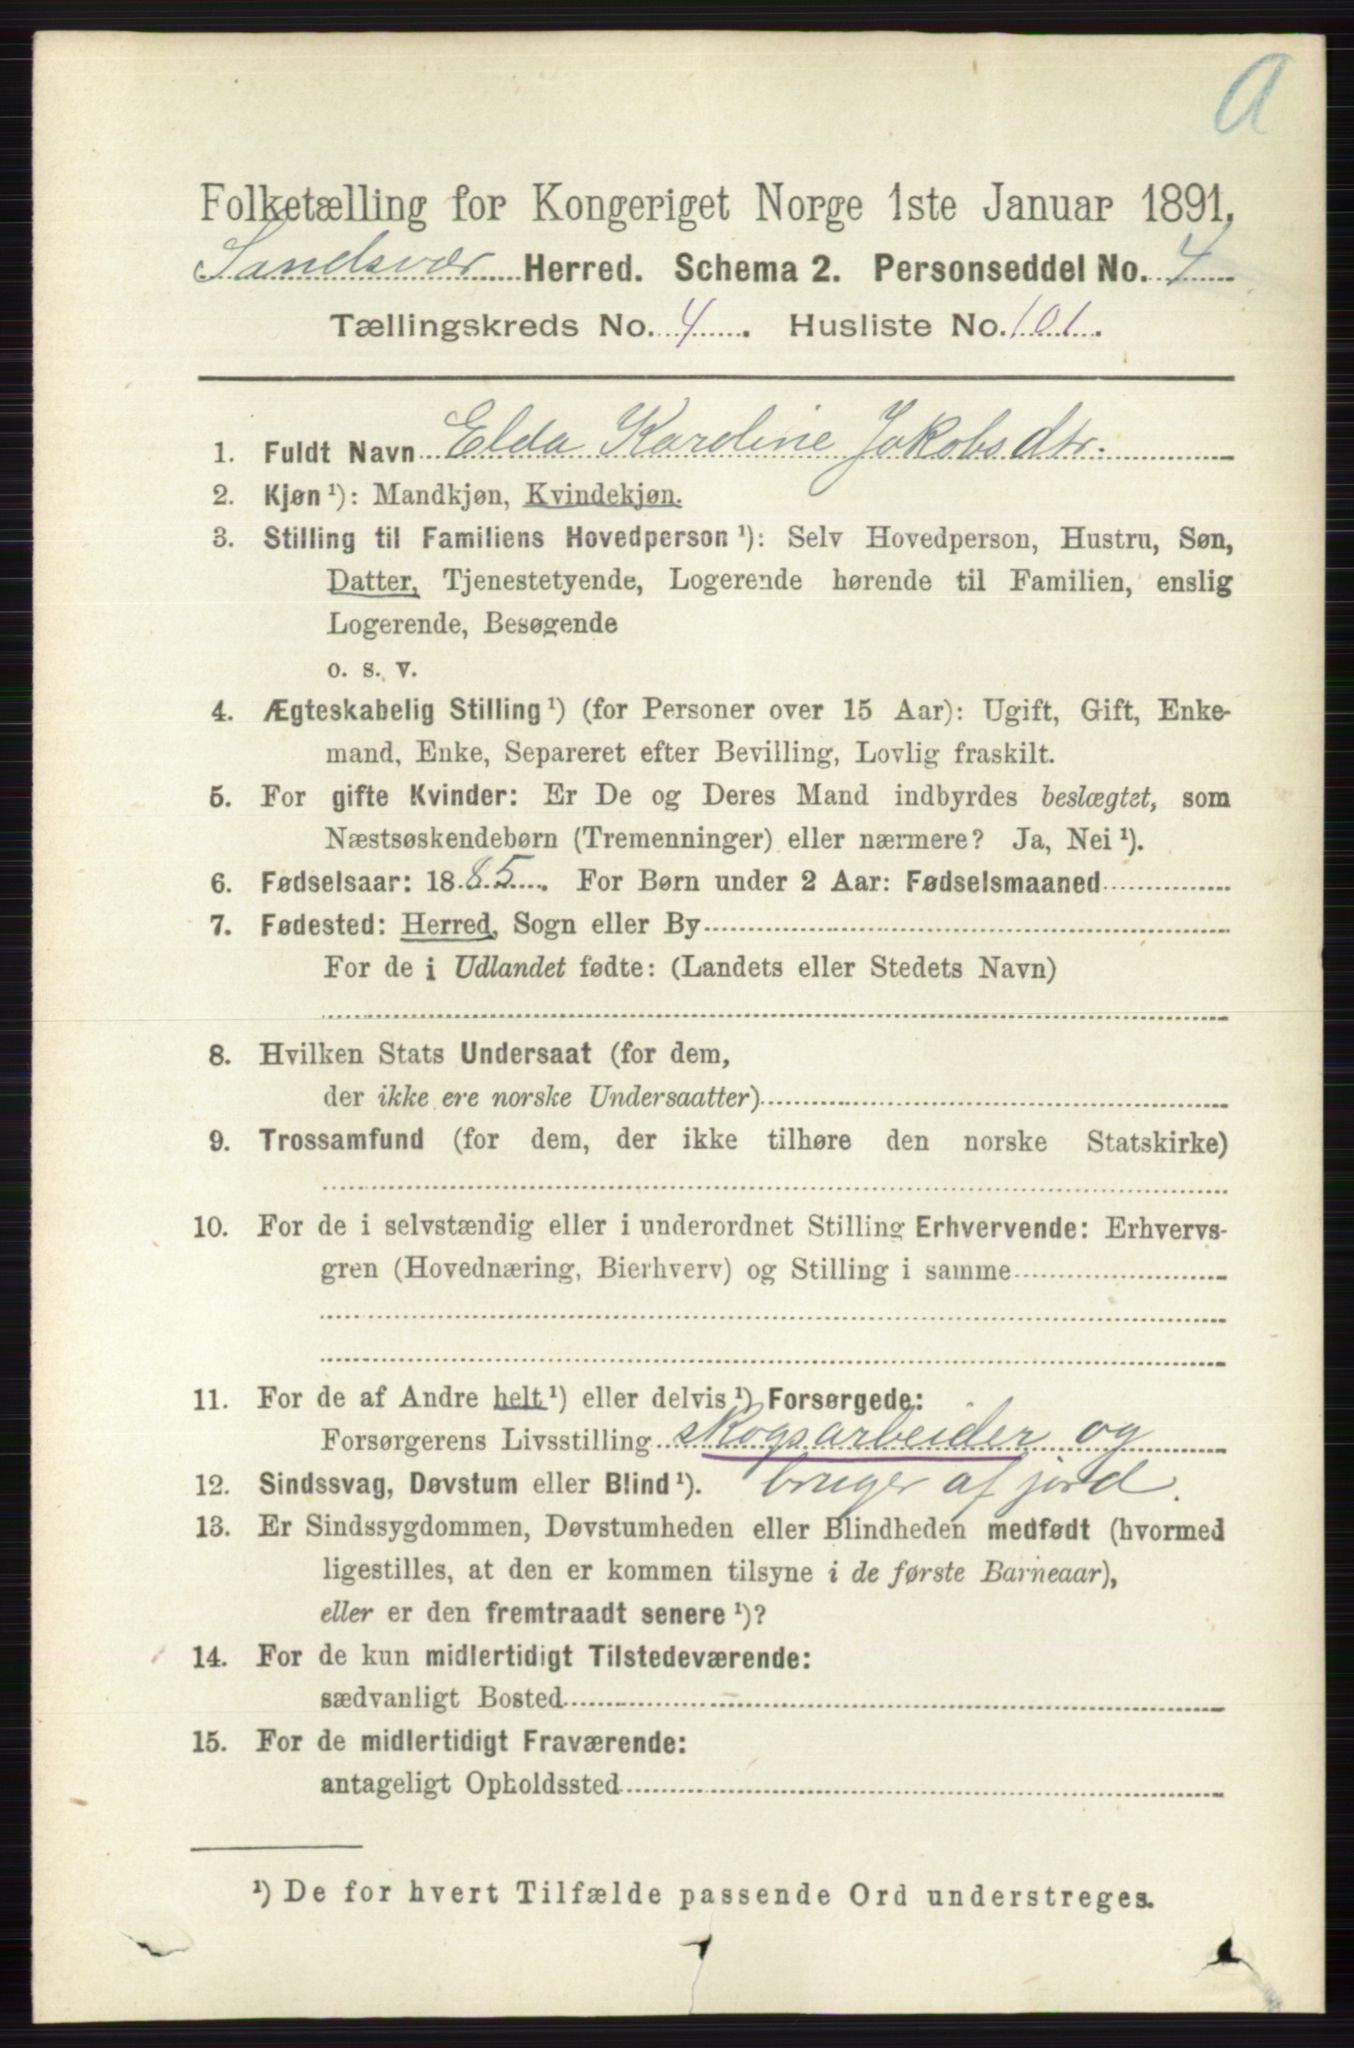 A
Folketælling for Kongeriget Norge 1ste Januar 1891.
Sandsvær Herred. Schema 2. Personseddel No. 4
Tællingskreds No. 4. Husliste No. 101.
1. Fuldt Navn Elda Karoline Jakobsdtr.
2. Kjøn ¹): Mandkjøn, Kvindekjøn.
3. Stilling til Familiens Hovedperson ¹): Selv Hovedperson, Hustru, Søn,
Datter, Tjenestetyende, Logerende hørende til Familien, enslig
Logerende, Besøgende
o. s. v.
4. Ægteskabelig Stilling ¹) (for Personer over 15 Aar): Ugift, Gift, Enke-
mand, Enke, Separeret efter Bevilling, Lovlig fraskilt.
5. For gifte Kvinder: Er De og Deres Mand indbyrdes beslægtet, som
Næstsøskendebørn (Tremenninger) eller nærmere? Ja, Nei ¹).
6. Fødselsaar: 1885. For Børn under 2 Aar: Fødselsmaaned
7. Fødested: Herred, Sogn eller By
For de i Udlandet fødte: (Landets eller Stedets Navn)
8. Hvilken Stats Undersaat (for dem,
der ikke ere norske Undersaatter)
9. Trossamfund (for dem, der ikke tilhøre den norske Statskirke)
10. For de i selvstændig eller i underordnet Stilling Erhvervende: Erhvervs-
gren (Hovednæring, Bierhverv) og Stilling i samme
11. For de af Andre helt ¹) eller delvis ¹) Forsørgede:
Forsørgerens Livsstilling skogsarbeider og
12. Sindssvag, Døvstum eller Blind ¹). bruger af jord.
13. Er Sindssygdommen, Døvstumheden eller Blindheden medfødt (hvormed
ligestilles, at den er kommen tilsyne i de første Barneaar),
eller er den fremtraadt senere ¹)?
14. For de kun midlertidigt Tilstedeværende:
sædvanligt Bosted
15. For de midlertidigt Fraværende:
antageligt Opholdssted
¹) De for hvert Tilfælde passende Ord understreges.